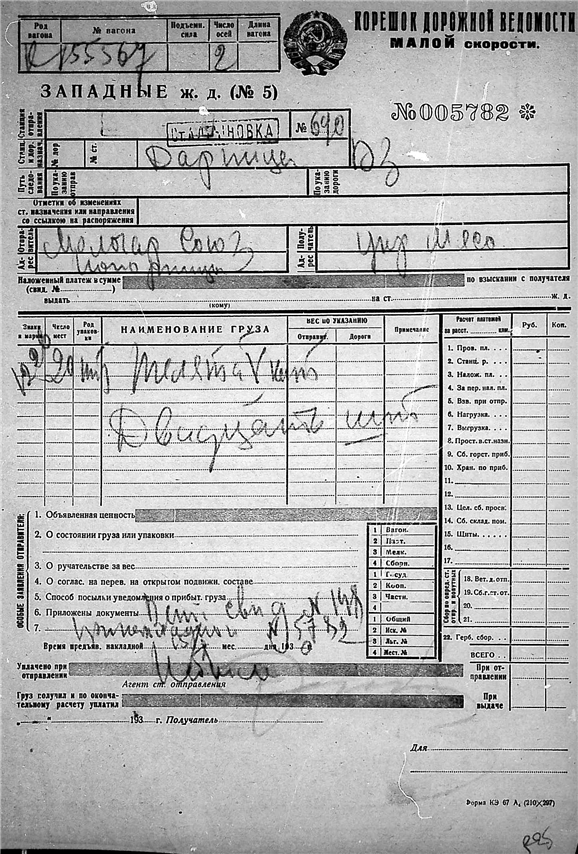 КОРЕШОК ДОРОЖНОЙ ВЕДОМОСТИ
МАЛОЙ скорости.
Род вагона
№ вагона
Подъемн. сила
Число осей
Длина вагона
155567
2
ЗАПАДНЫЕ ж. д. (№ 5)
№005782
Станция отправления
СТАЛИНОВКА
№ 690
Станц. и дор. назнач.
№ дор
№ ст.
Дарница
Путь следования
По указанию отправ
По указанию дороги
Отметки об изменениях
ст. назначения или направления
со ссылкою на распоряжения
Адрес
Отправитель
Союз
Адрес
Получатель
Мясо
Наложенный платеж в сумме
по взысканию с получателя
(свид. №
)
выдать
на ст.
ж. д.
(кому)
Знаки и марки
Число мест
Род упаковки
НАИМЕНОВАНИЕ ГРУЗА
ВЕС ПО УКАЗАНИЮ
Отправит.
Дороги
Примечание
Расчет платежей
за расст.
клм.
Руб.
Коп.
20 шт Телята
Двадцать шт
1. Пров. пл.
2. Станц. р.
3. Налож. пл.
4. За пер. нал. пл.
5. Взв. при отпр.
6. Нагрузка.
7. Выгрузка.
8. Прост. в.ст.назн.
9. Сб. горст. приб.
10. Хран. по приб.
11.
12.
13. Цел. сб. проск.
14. Сб. склад. пом.
15. Щиты.
16.
17.
Сборы перед. ст. отпр. и попутных
18. Вет. д. отп.
19. Сб.г.ст. от.
20.
21.
22. Герб. сбор.
ВСЕГО
ОСОБЫЕ ЗАЯВЛЕНИЯ ОТПРАВИТЕЛЯ:
1. Объявленная ценность
2. О состоянии груза или упаковки
3. О ручательстве за вес
4. О соглас. на перев. на открытом подвижн. составе
5. Способ посылки уведомления о прибыт. груза
6. Приложены документы Вет свид N 198
7. N 5782
1 Вагон.
2 Повт.
3 Мелк.
4 Сборн.
1 Госуд.
2 Кооп.
3 Частн.
4
1 Общий
2 Иск. №
3 Льг. №
4 Мест. №
Время предъяв. накладной
мес.
дня 193
Уплачено при отправлении
Агент ст. отправления
При отправлении
Груз получил и по окончательному расчету уплатил
При выдаче
" " 193 г. Получатель
Для
Форма КЭ 67 А₄ (210×297)